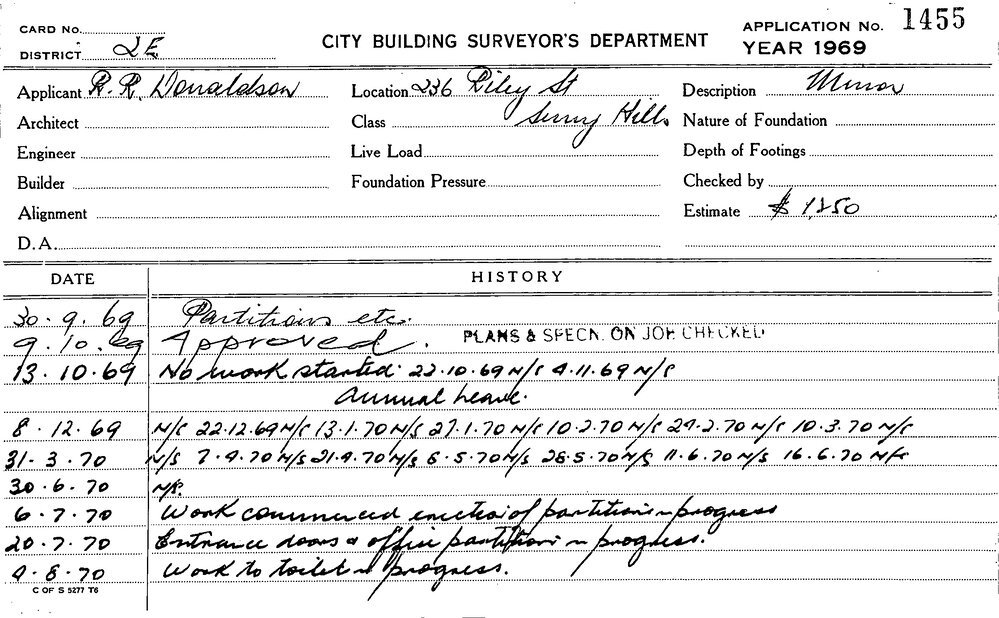 CARD No.
APPLICATION No. 1455
DISTRICT 2E
CITY BUILDING SURVEYOR'S DEPARTMENT
YEAR 1969
Applicant R. R. Donaldson Location 236 Riley St Description Minor
Architect Class Surry Hills Nature of Foundation
Engineer Live Load Depth of Footings
Builder Foundation Pressure Checked by
Alignment Estimate $ 1,250
D.A.
DATE HISTORY
30.9.69 Partitions etc.
9.10.69 Approved. PLANS & SPECN. ON JOB CHECKED
13.10.69 No work started. 22.10.69 N/S 4.11.69 N/S
Annual Leave.
8.12.69 N/S 22.12.69 N/S 13.1.70 N/S 27.1.70 N/S 10.2.70 N/S 24.2.70 N/S 10.3.70 N/S
31.3.70 N/S 7.4.70 N/S 21.4.70 N/S 8.5.70 N/S 28.5.70 N/S 11.6.70 N/S 16.6.70 N/S
30.6.70 N/S.
6.7.70 Work commenced erection of partitions in progress
20.7.70 Entrance doors & office partitions in progress.
4.8.70 Work to toilet in progress.
C OF S 5277 T6